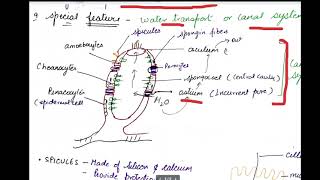 9. special feature - water transport or canal system
spicules
amoebocytes
spongin fibers
out
osculum
Choanocytes
Porocytes
spongocoel (central cavity)
Pinacocytes
(epidermal cell)
ostium (incurrent pore)
H₂O
• SPICULES - Made of Silicon & calcium
Provide protection